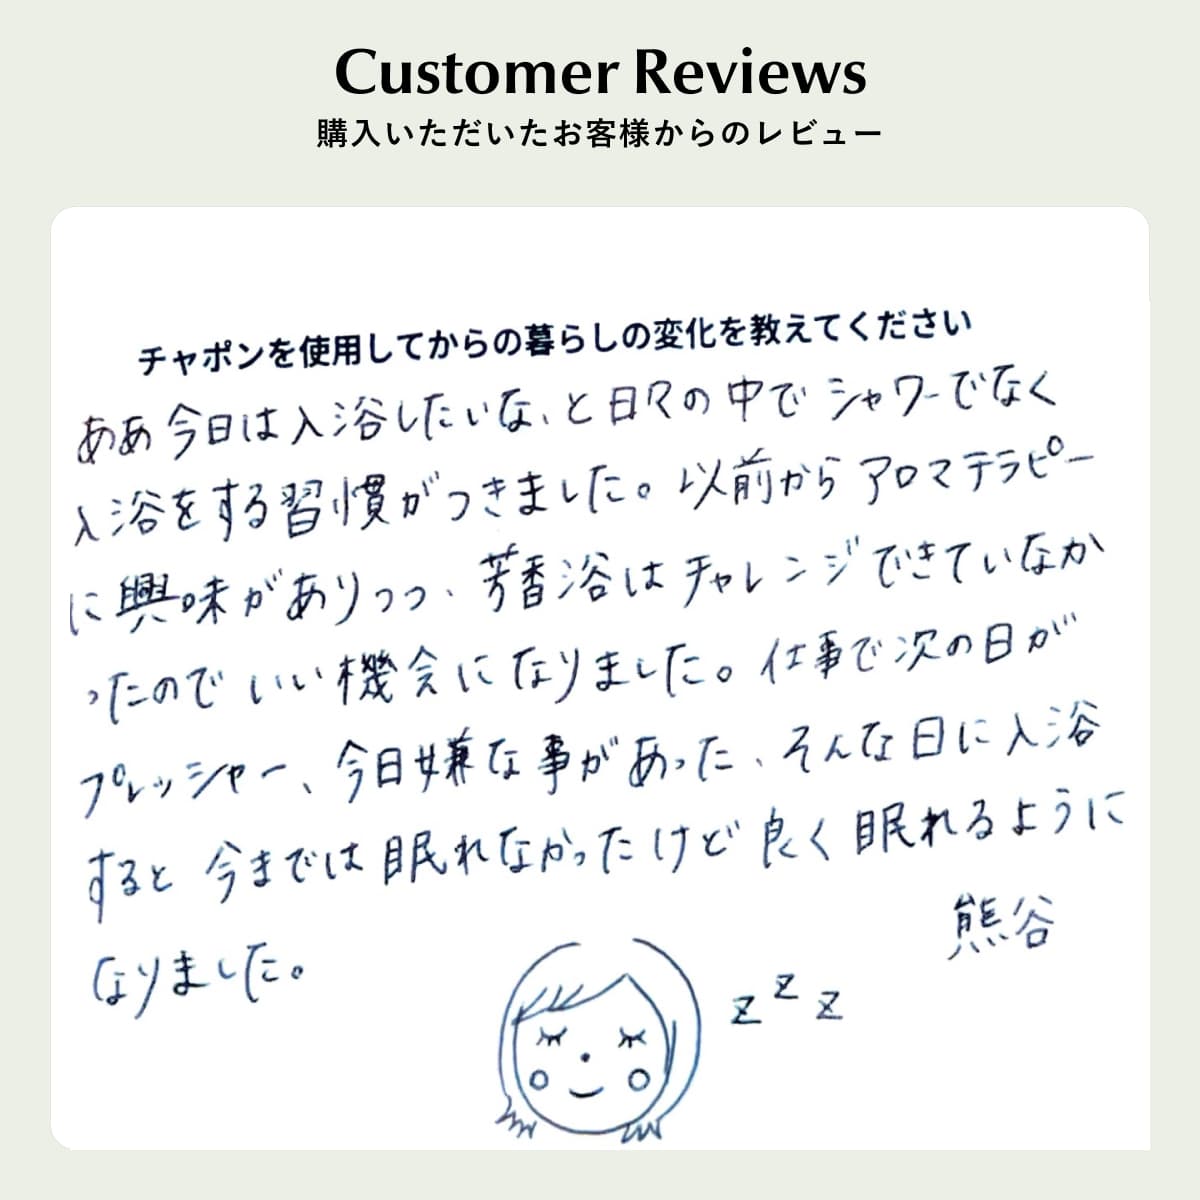 Customer Reviews
購入いただいたお客様からのレビュー
チャポンを使用してからの暮らしの変化を教えてください
ああ今日は入浴したいな、と日々の中でシャワーでなく
入浴をする習慣がつきました。以前からアロマテラピー
に興味がありつつ、芳香浴はチャレンジできていなか
ったのでいい機会になりました。仕事で次の日が
プレッシャー、今日嫌な事があった、そんな日に入浴
すると今までは眠れなかったけど良く眠れるように
なりました。
熊谷
z z z